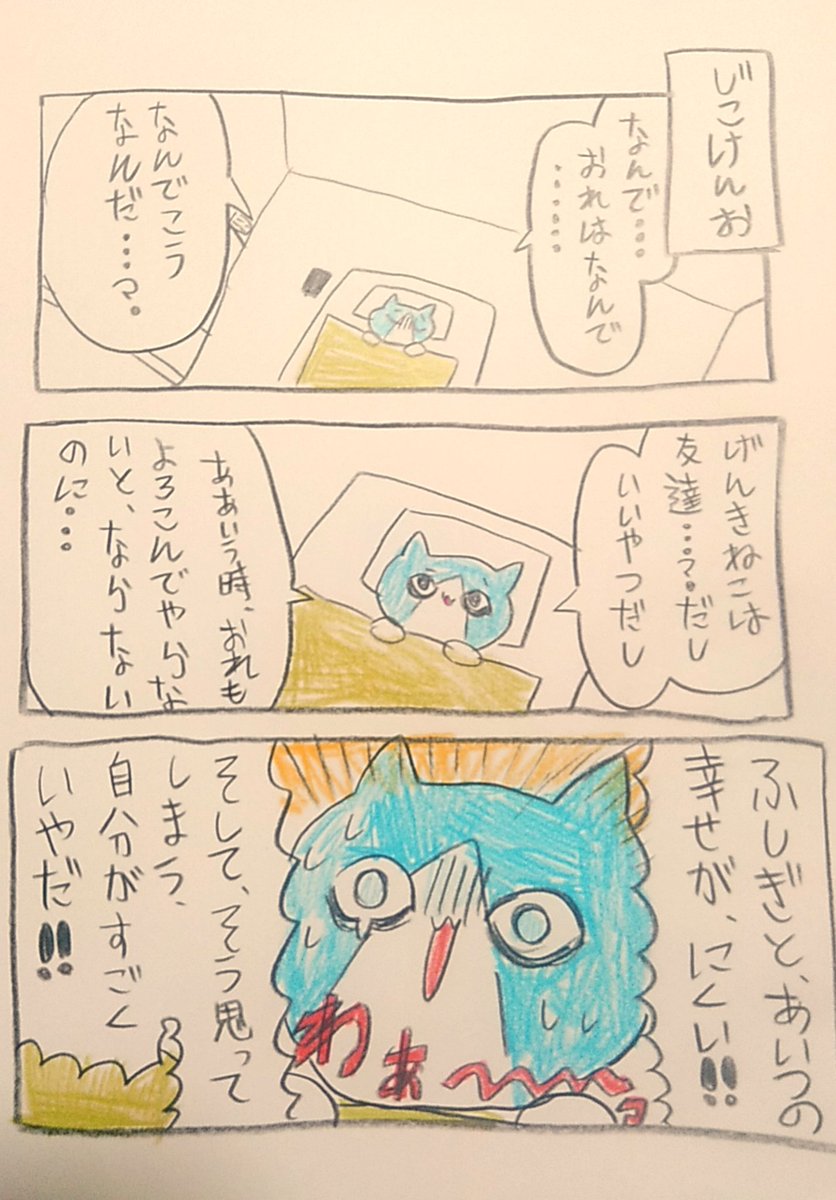 じこけんお
なんで…
おれはなんで
……
なんでこう
なんだ…?。
げんきねこは
友達…?。だし
いいやつだし
ああいう時、おれも
よろこんでやらな
いと、ならない
のに…
ふしぎと、あいつの
幸せが、にくい!!
そして、そう思って
しまう、
自分がすごく
いやだ!!
わぁ〜〜っ